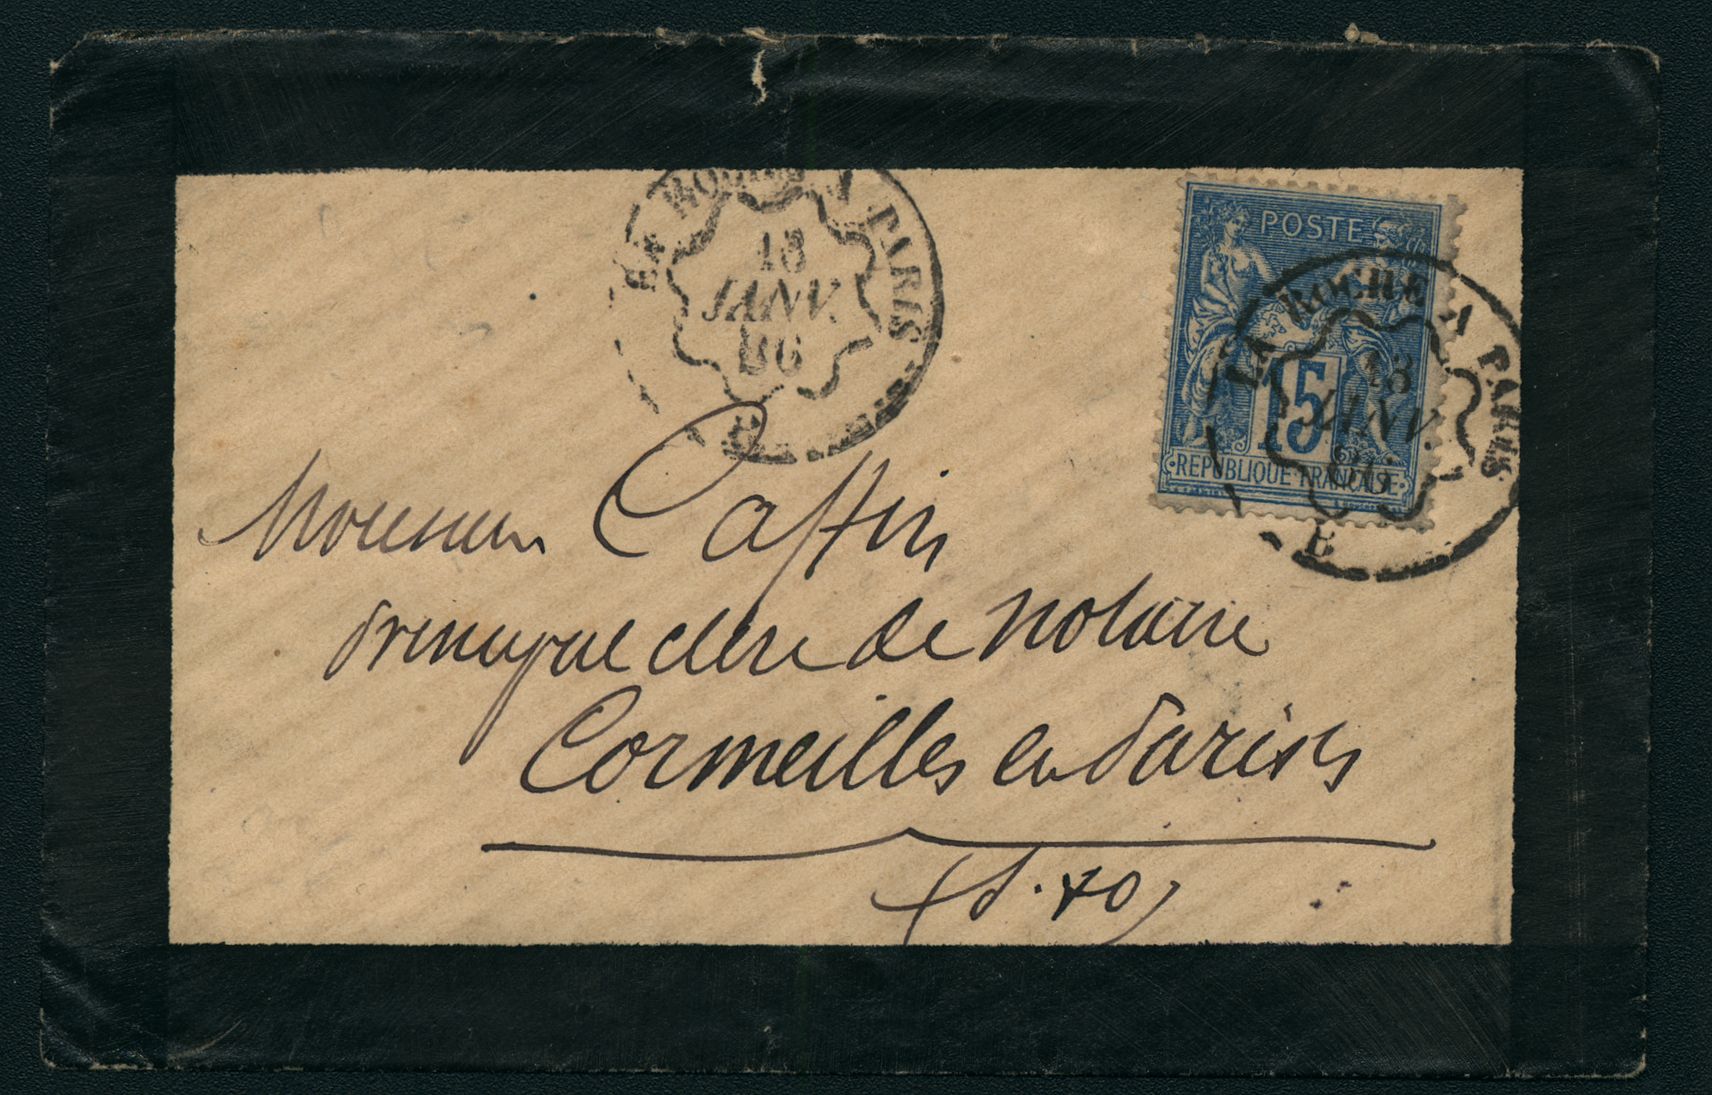 LA ROCHE A PARIS
18
JANV.
86
B
POSTE
15
REPUBLIQUE FRANCAISE
LA ROCHE A PARIS
18
JANV.
86
B
Monsieur Caffin
principal clerc de notaire
Cormeilles en Parisis
(S. &O)